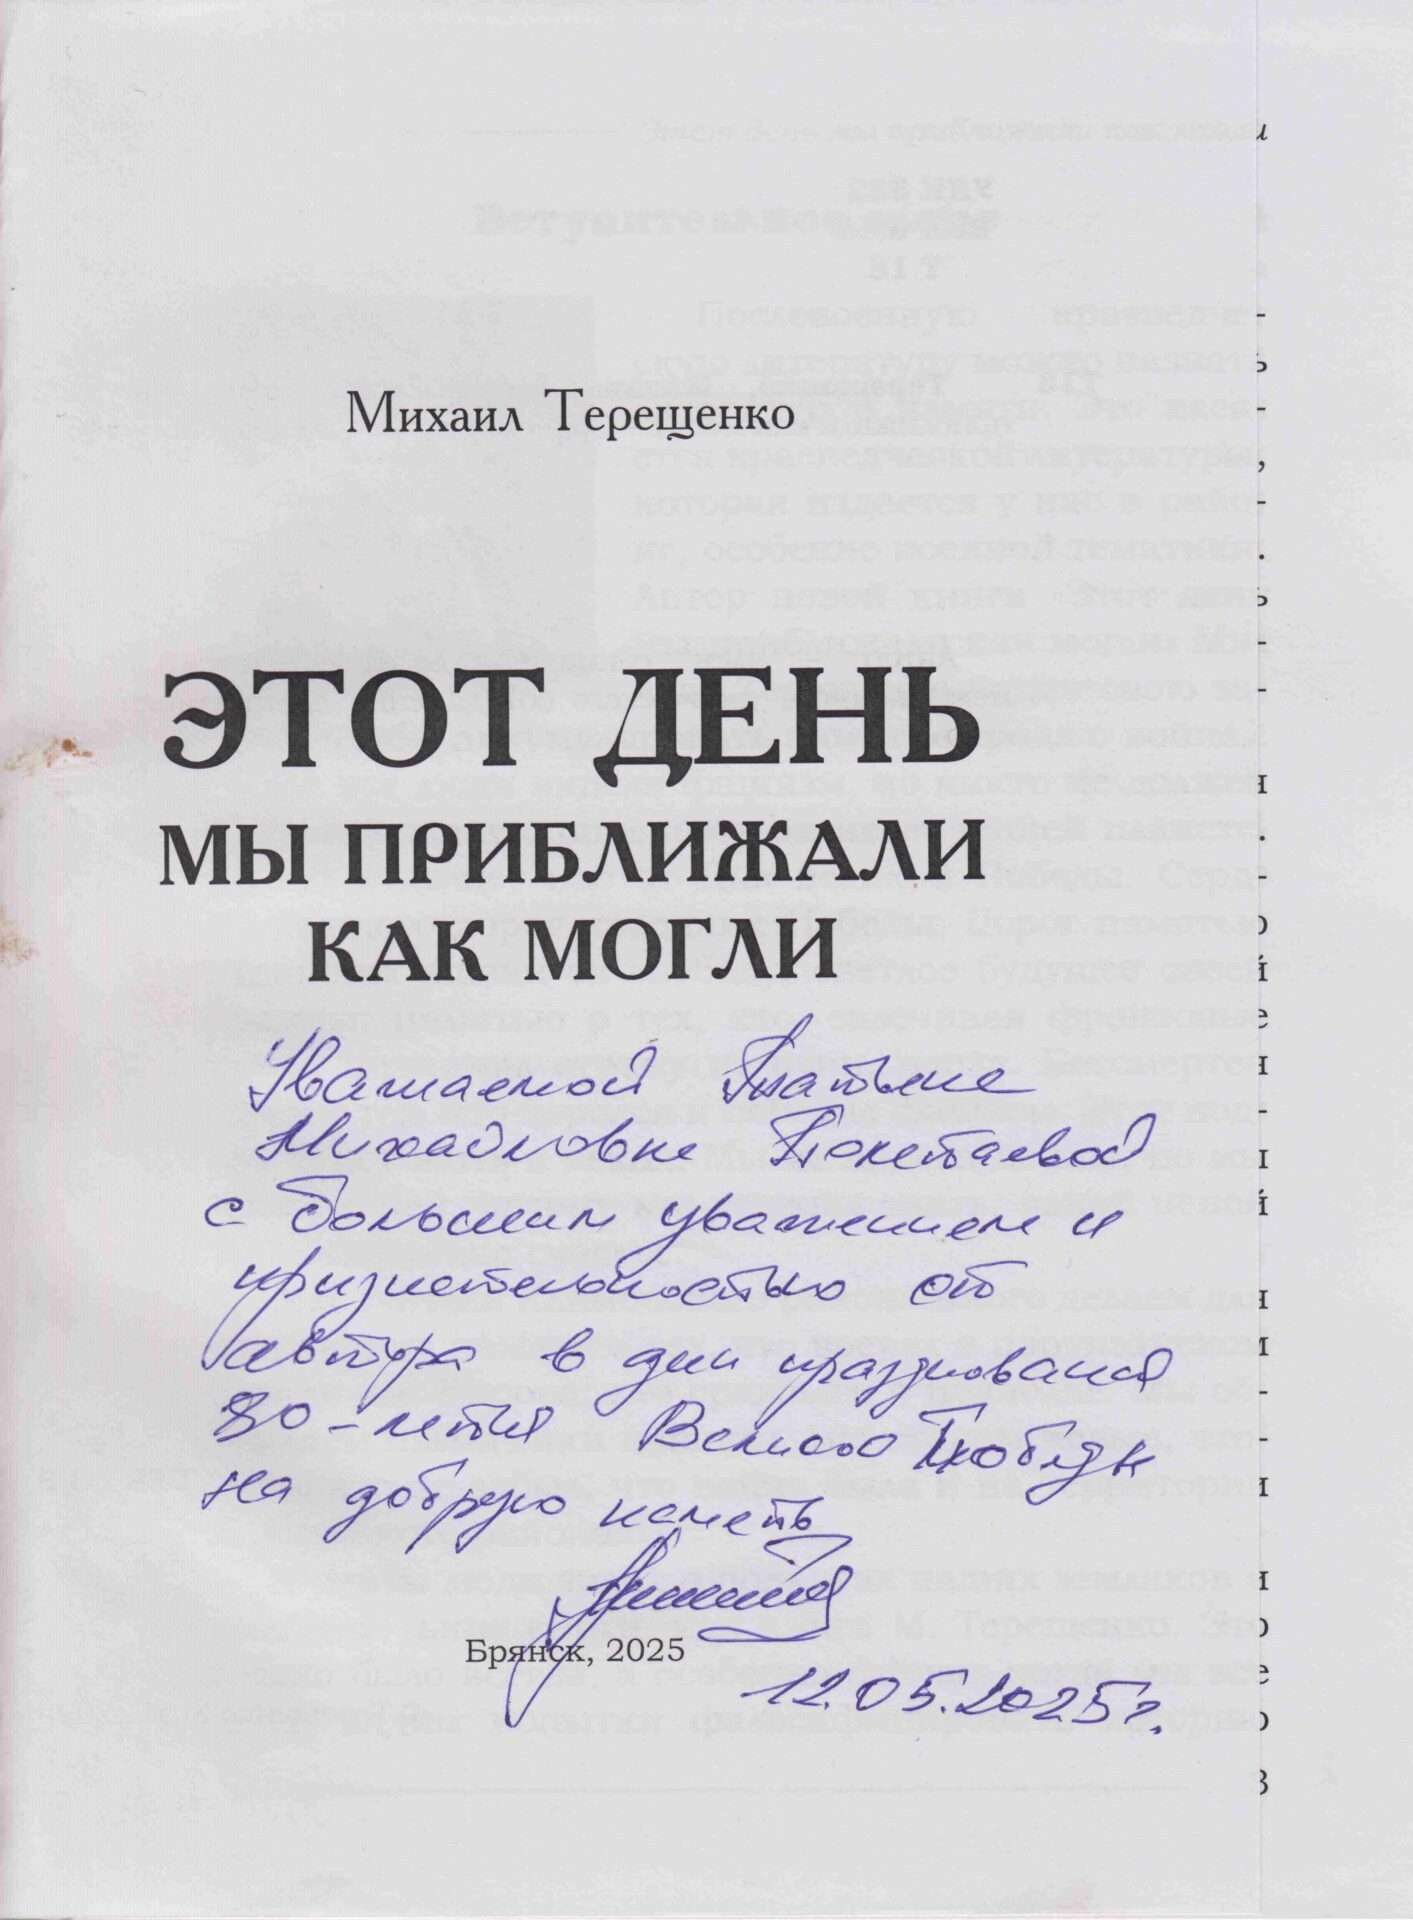 Михаил Терещенко
ЭТОТ ДЕНЬ
МЫ ПРИБЛИЖАЛИ
КАК МОГЛИ
Уважаемой Татьяне
Михайловне
с большим уважением и
признательностью от
автора в дни празднования
80-летия Великой Победы
на добрую память
Брянск, 2025
12.05.2025г.